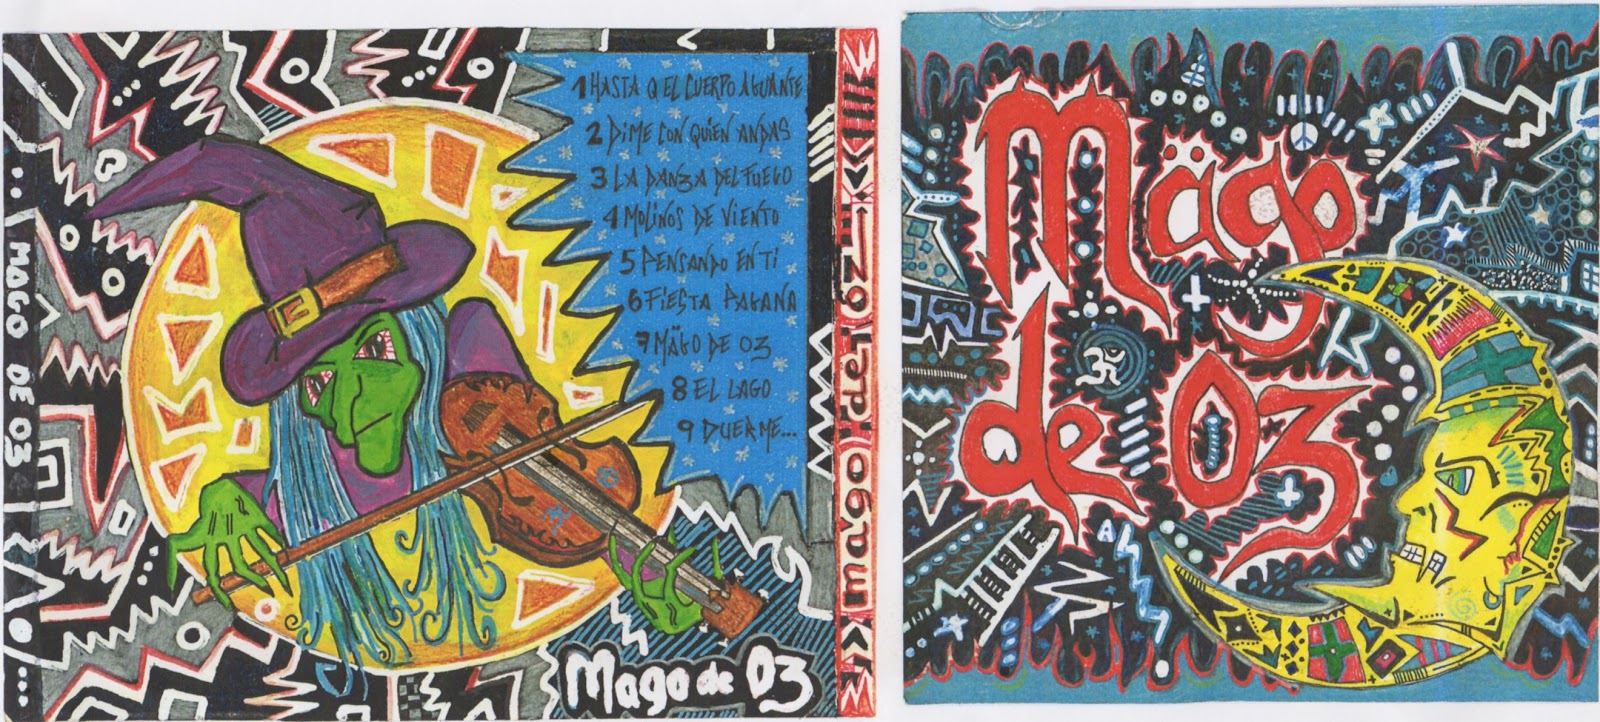 MAGO DE O3
1 HASTA Q EL CUERPO AGUANTE
2 DIME CON QUIEN ANDAS
3 LA DANZA DEL FUEGO
4 MOLINOS DE VIENTO
5 PENSANDO EN TI
6 FIESTA PAGANA
7 MÄGO DE O3
8 EL LAGO
9 DUERME...
Mago de O3
mago de OZ
Mägo
de O3